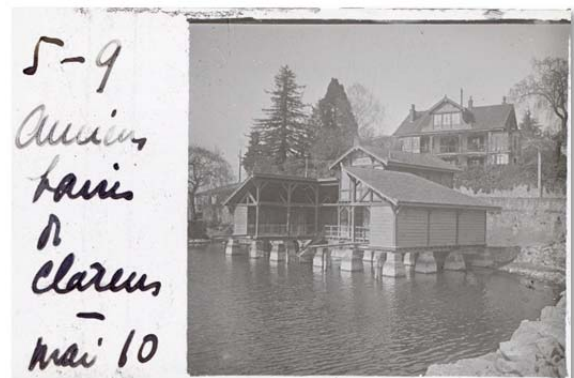 5-9
Anciens
bains
de
Clarens
-
mai 10